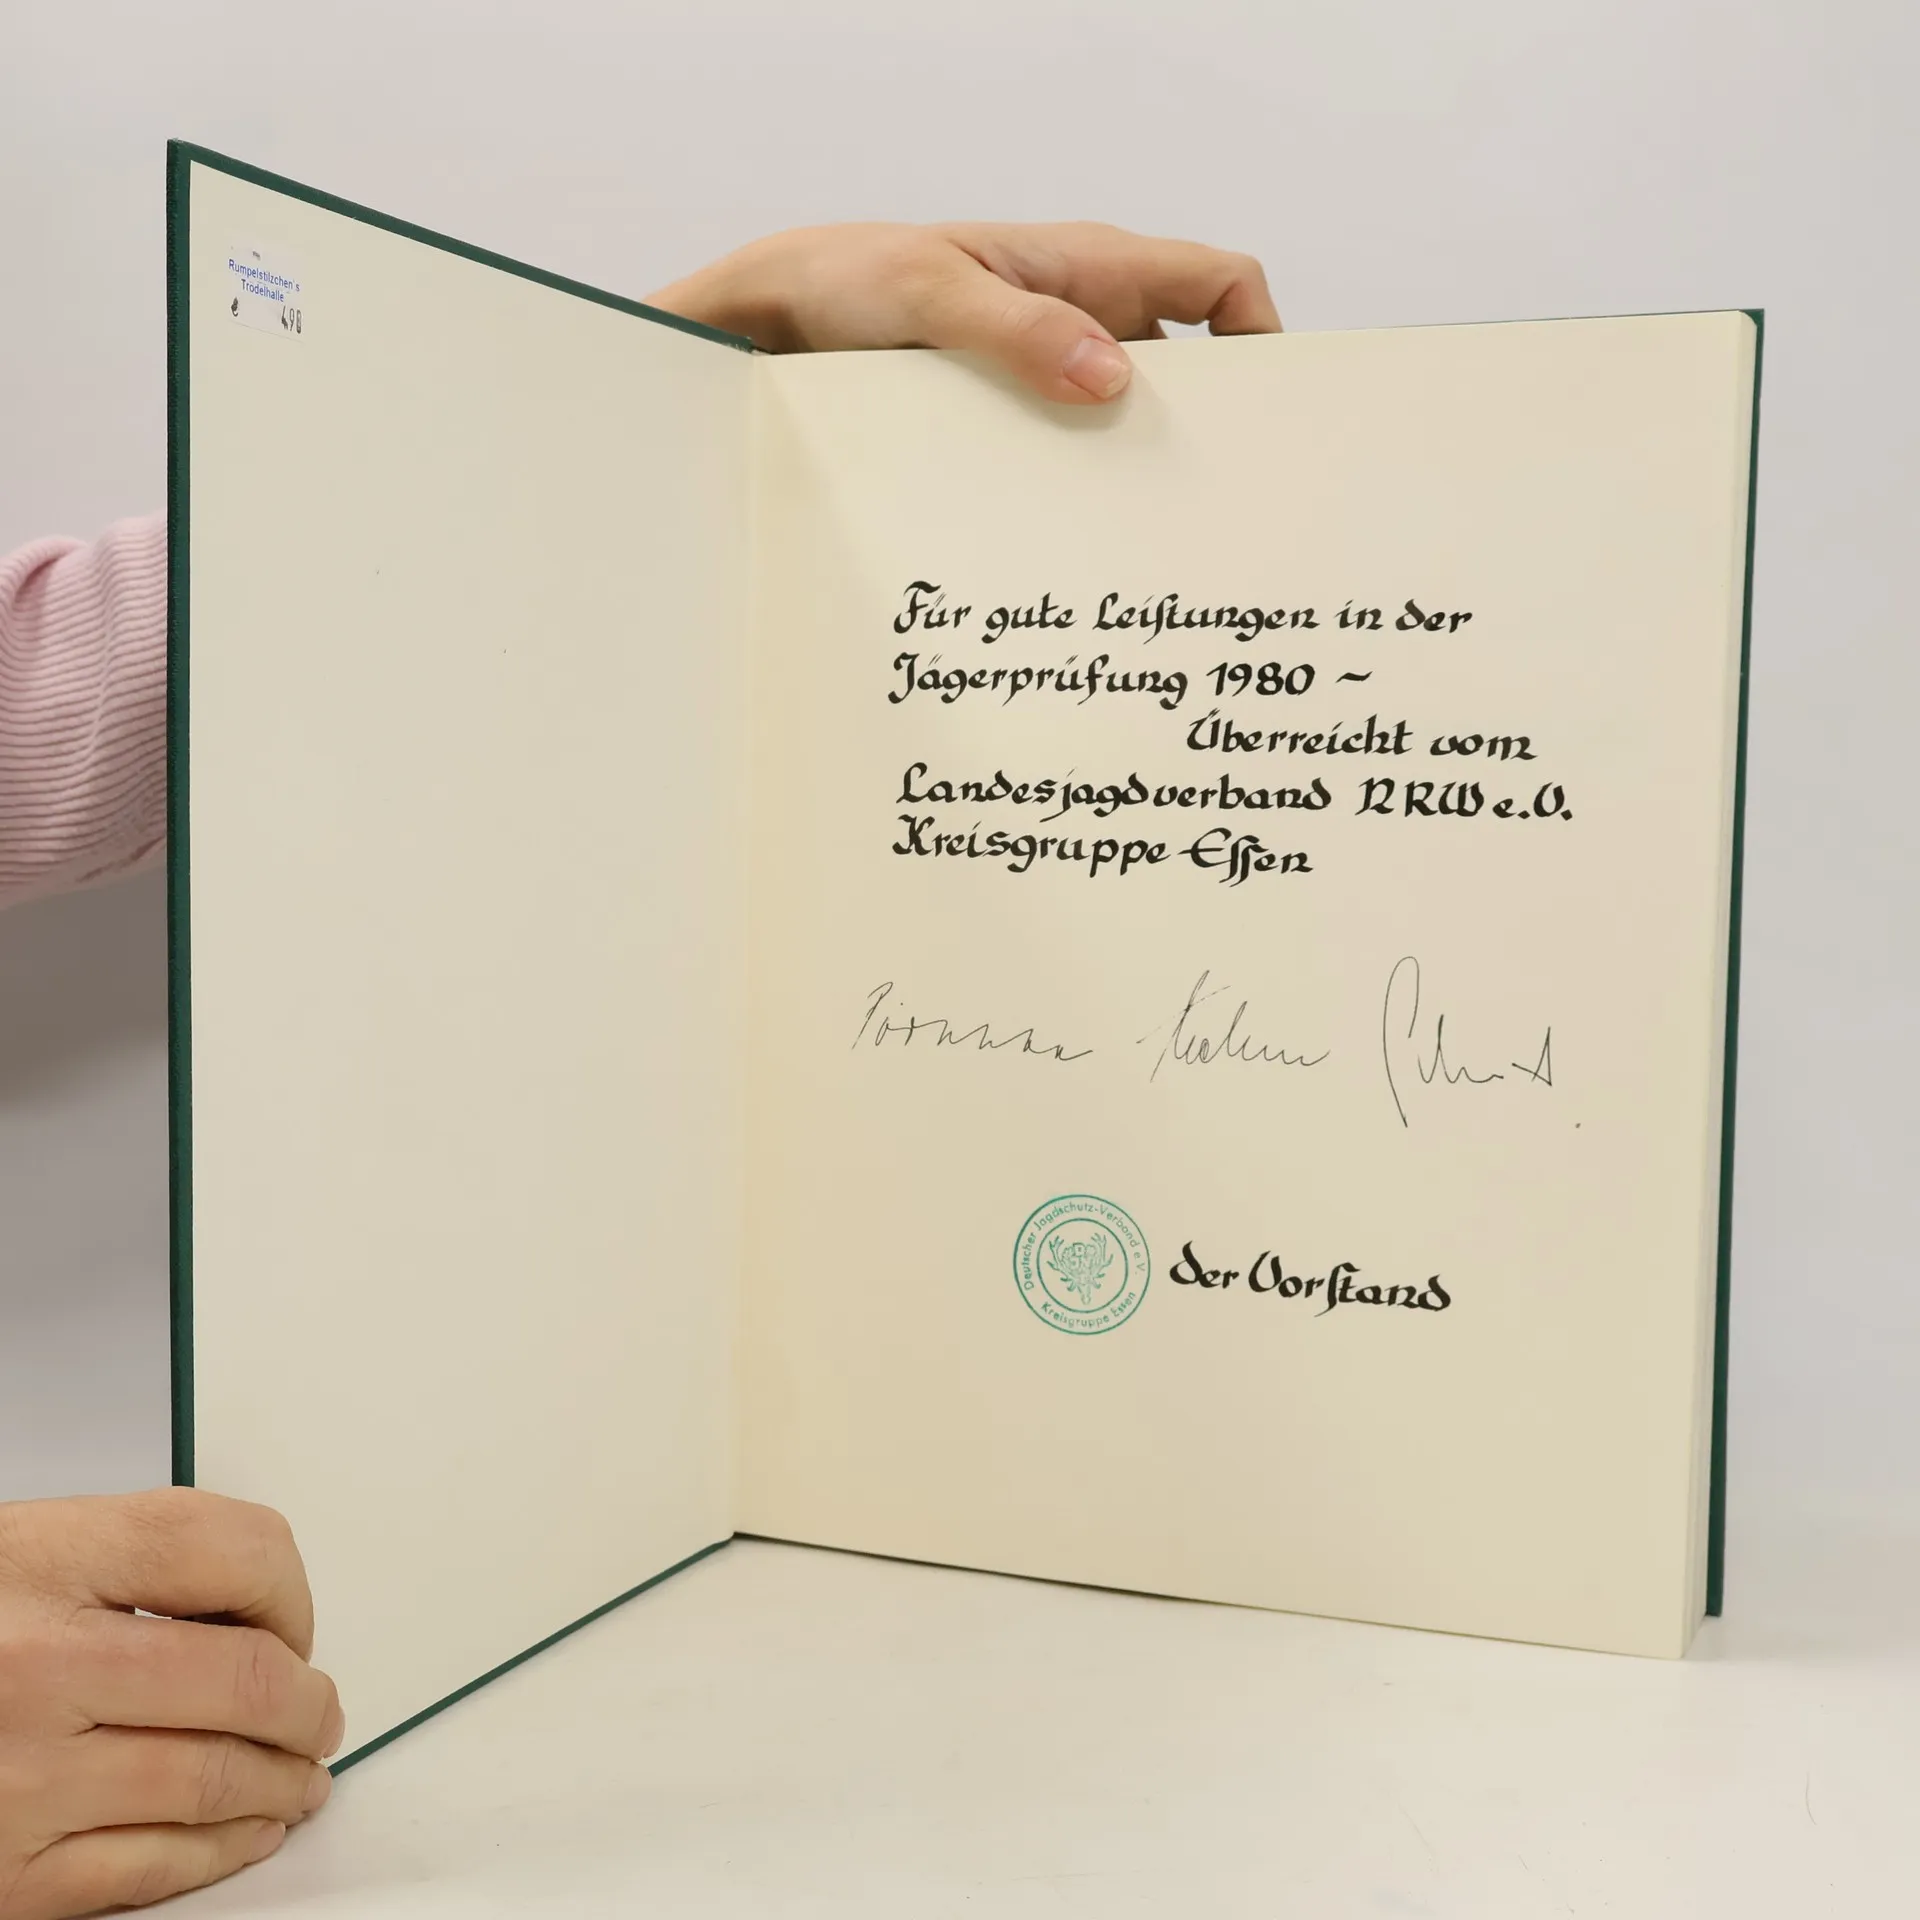 Rumpelstilzchen's
Trödelhalle
€
Für gute Leiſtungen in der
Jägerprüfung 1980 ~
Überreicht vom
Landesjagdverband NRW e.V.
Kreisgruppe Eſſen
Deutscher Jagdschutz-Verband e.V.
Kreisgruppe Essen
der Vorſtand